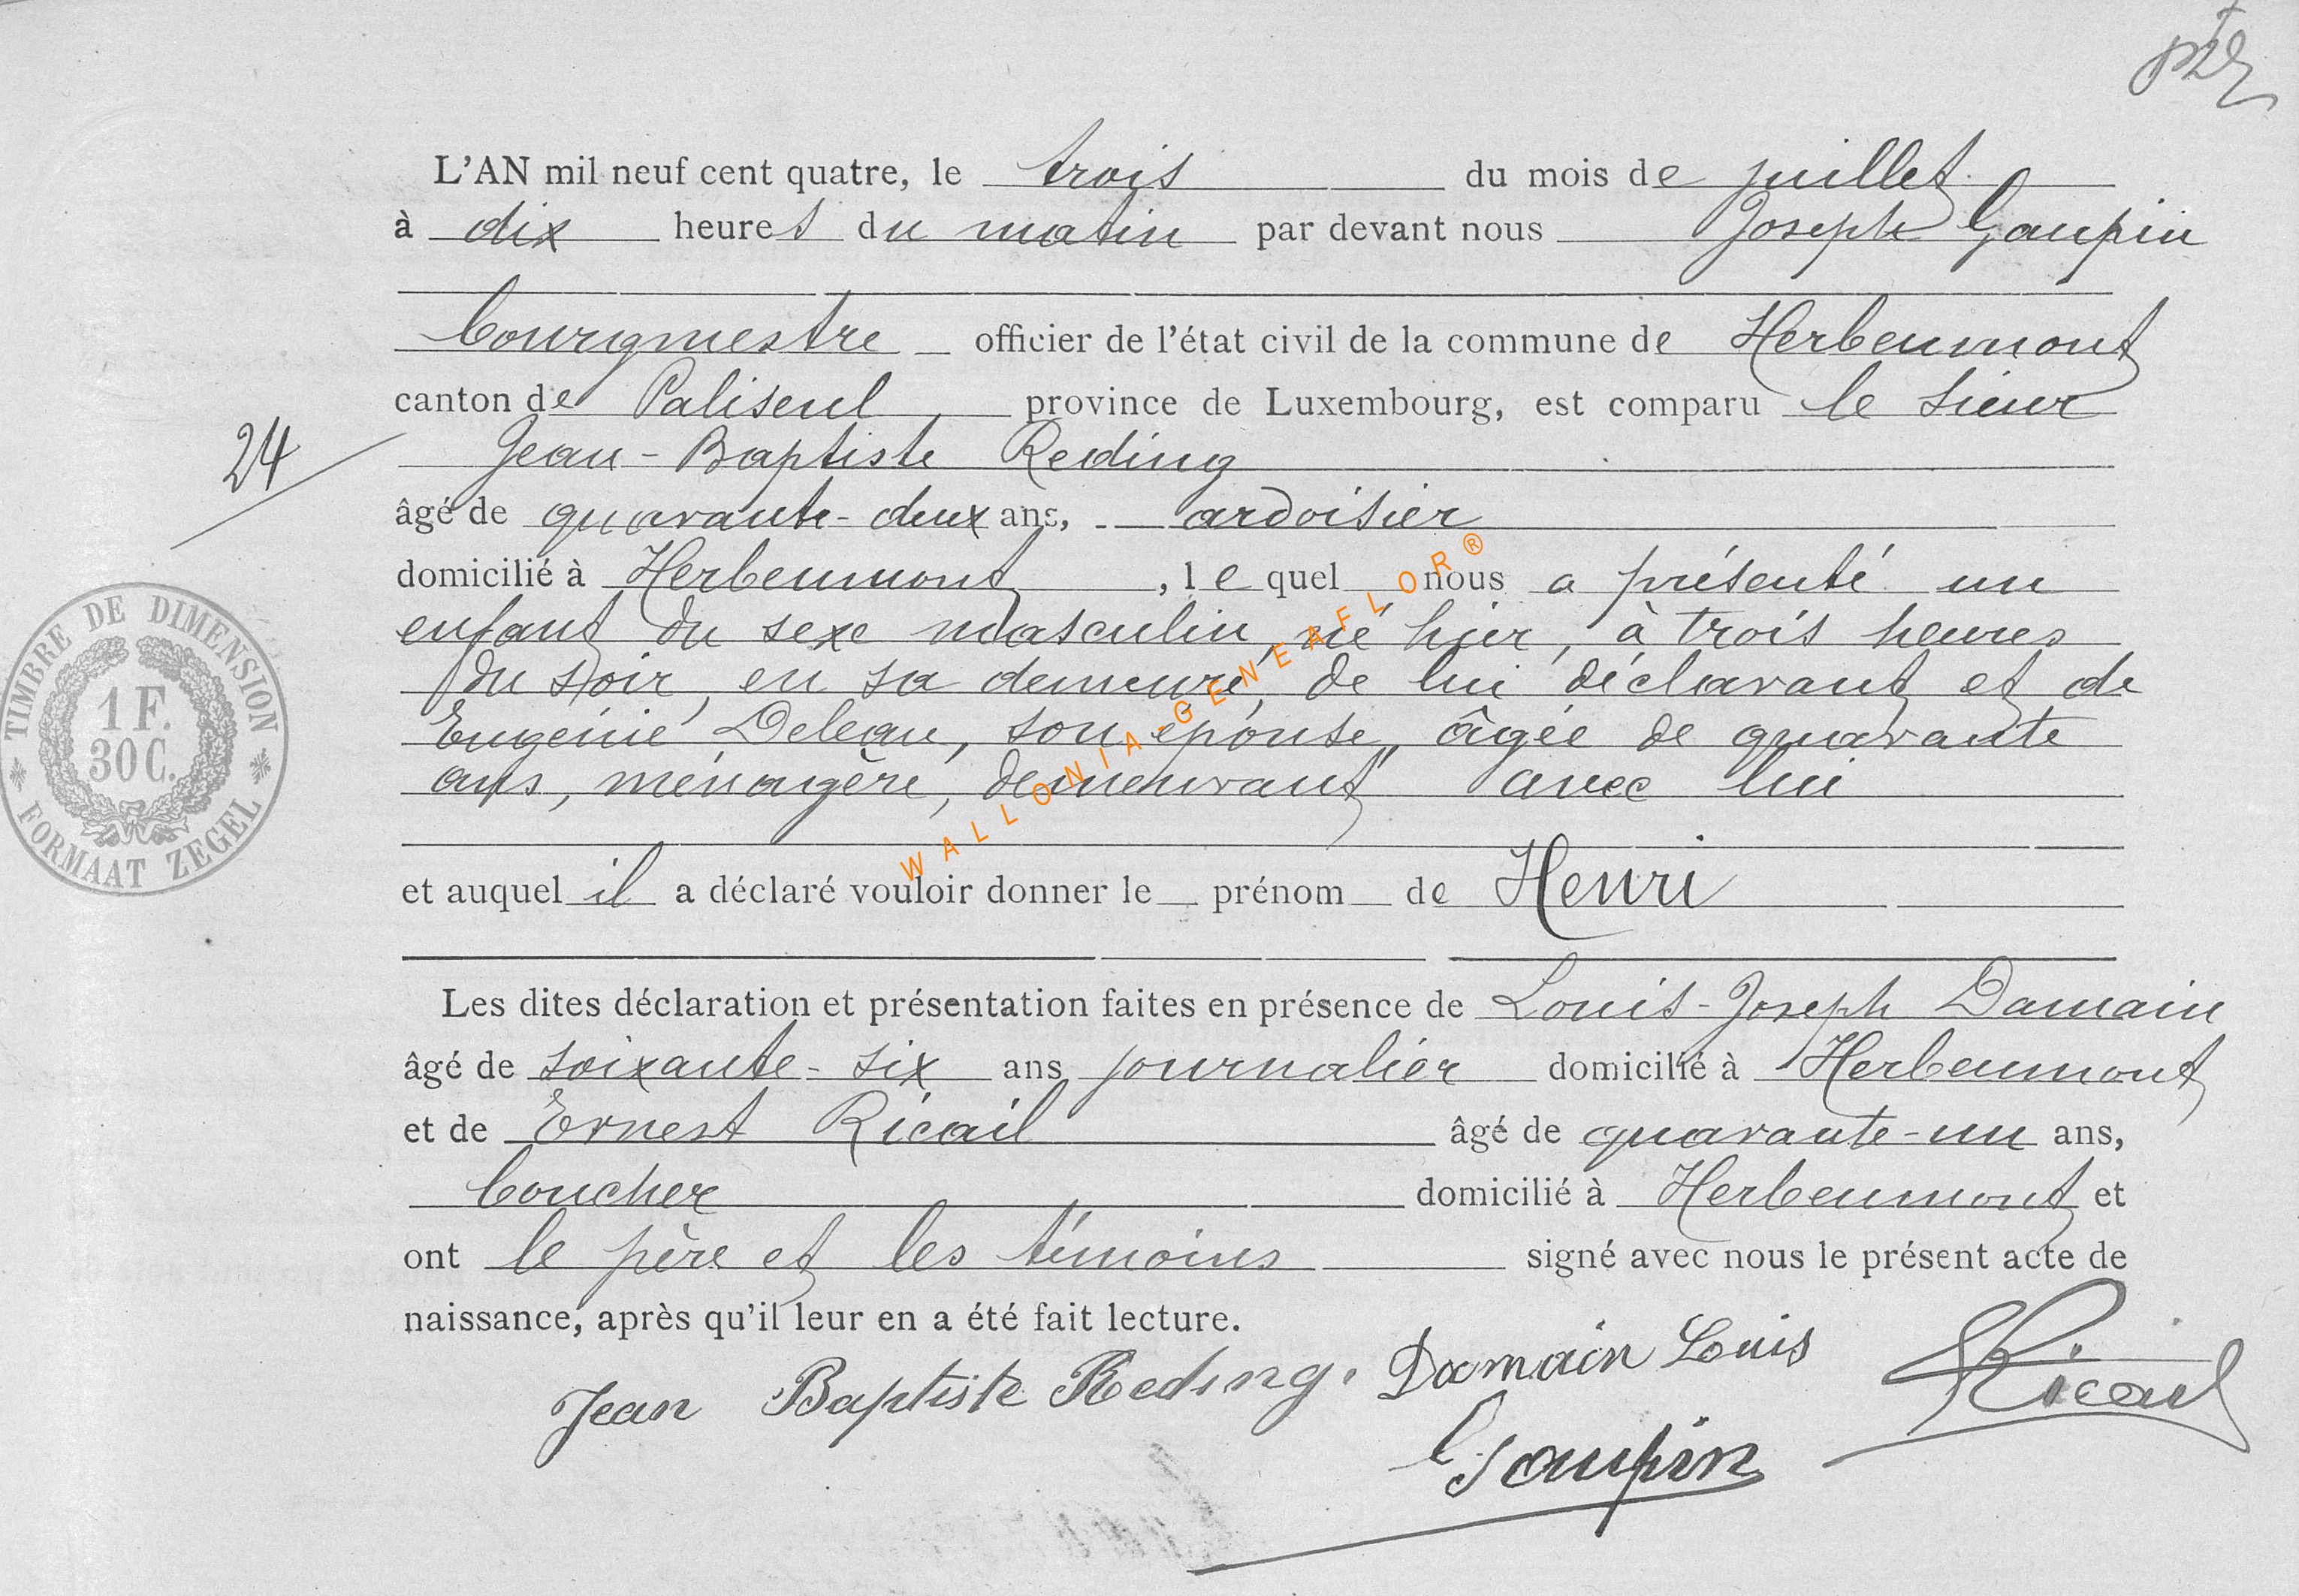 L'AN mil neuf cent quatre, le trois du mois de juillet
à dix heures du matin par devant nous Joseph Gaupin
bourgmestre officier de l'état civil de la commune de Herbeumont
canton de Paliseul, province de Luxembourg, est comparu le sieur
Jean-Baptiste Reding
24
âgé de quarante-deux ans, ardoisier
domicilié à Herbeumont, lequel nous a présenté un
enfant du sexe masculin, né hier, à trois heures
du soir, en sa demeure, de lui déclarant et de
Eugénie Deleau, son épouse, âgée de quarante
ans, ménagère, demeurant avec lui
et auquel il a déclaré vouloir donner le prénom de Henri
Les dites déclaration et présentation faites en présence de Louis-Joseph Damain
âgé de soixante-six ans journalier domicilié à Herbeumont
et de Ernest Ricail âgé de quarante-un ans,
boucher domicilié à Herbeumont et
ont le père et les témoins signé avec nous le présent acte de
naissance, après qu'il leur en a été fait lecture.
Jean Baptiste Reding. Damain Louis Ricail
Gaupin
TIMBRE DE DIMENSION
1 F.
30 C.
FORMAAT ZEGEL
WALLONIA-GENEAFLOR®